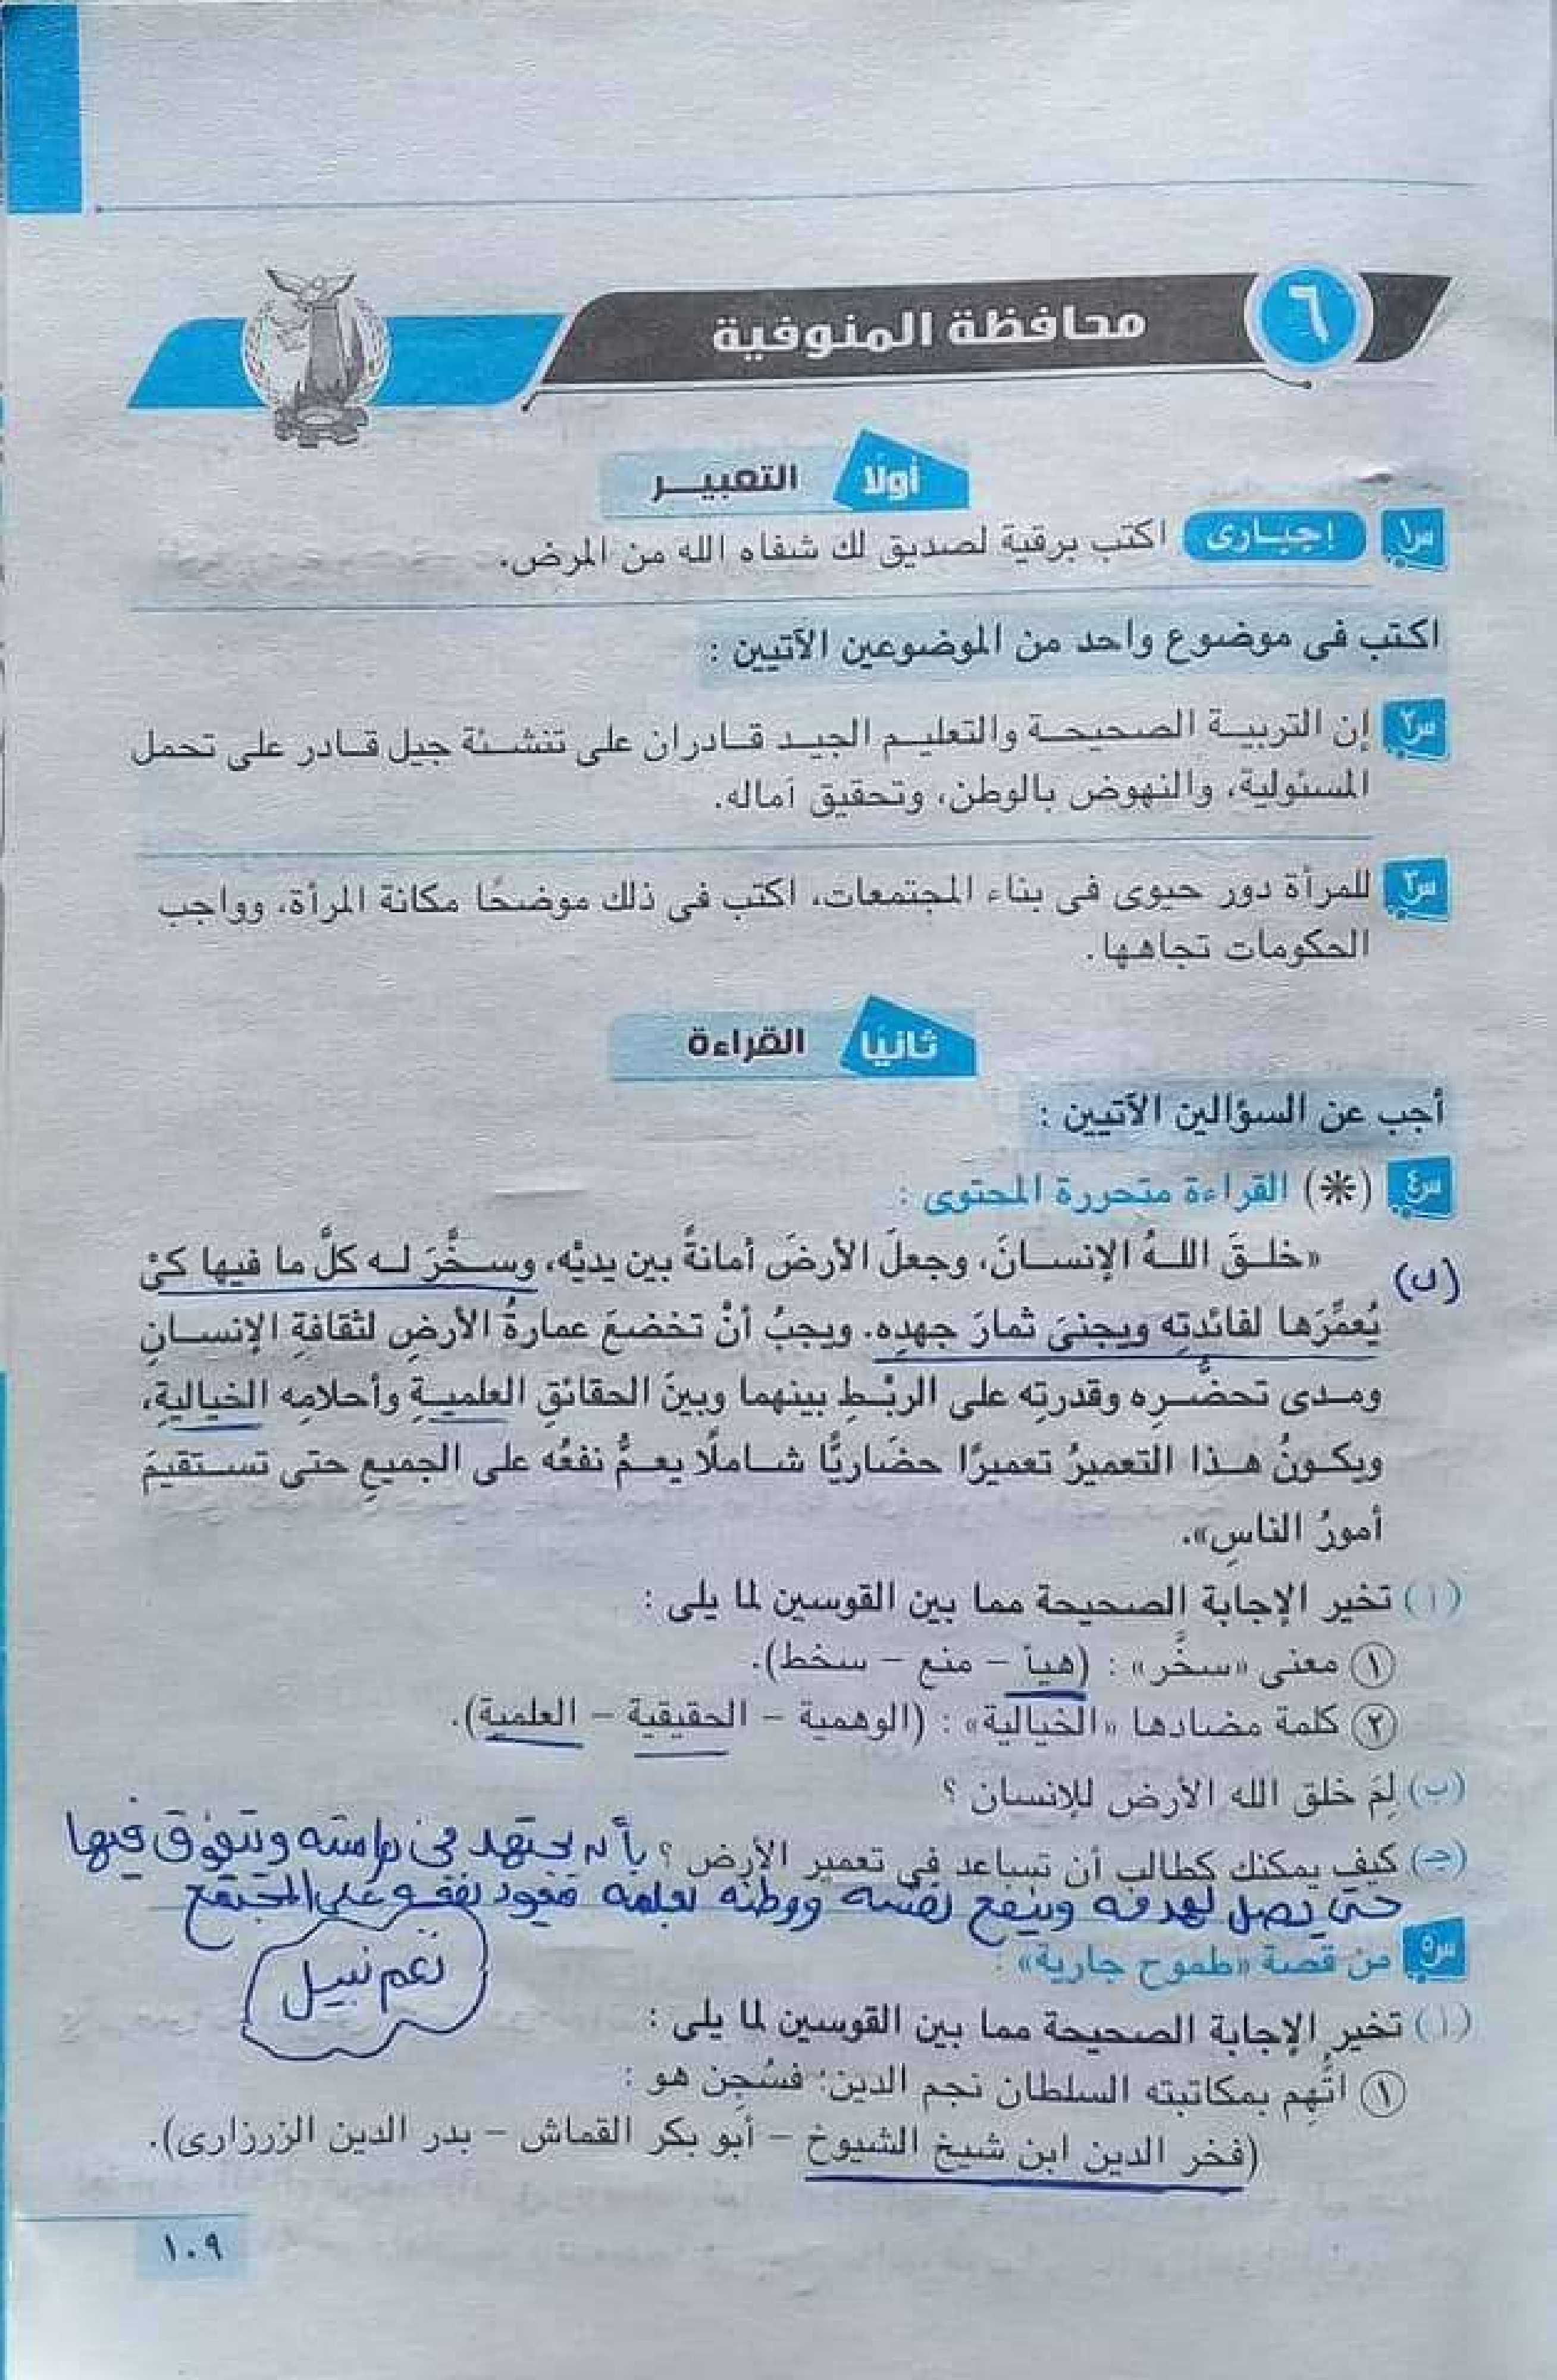 ٦
محافظة المنوفية
أولًا التعبير
س١ إجبارى اكتب برقية لصديق لك شفاه الله من المرض.
اكتب فى موضوع واحد من الموضوعين الآتيين :
س٢ إن التربية الصحيحة والتعليم الجيد قادران على تنشئة جيل قادر على تحمل
المسئولية، والنهوض بالوطن، وتحقيق آماله.
س٣ للمرأة دور حيوى فى بناء المجتمعات، اكتب فى ذلك موضحًا مكانة المرأة، وواجب
الحكومات تجاهها.
ثانيًا القراءة
أجب عن السؤالين الآتيين :
س٤ (*) القراءة متحررة المحتوى :
«خلقَ اللهُ الإنسانَ، وجعلَ الأرضَ أمانةً بين يديْه، وسخَّرَ له كلَّ ما فيها كىْ
(ب)
يُعمِّرَها لفائدتِه ويجنىَ ثمارَ جهدِه. ويجبُ أنْ تخضعَ عمارةُ الأرضِ لثقافةِ الإنسانِ
ومدى تحضُّرِه وقدرتِه على الربْطِ بينهما وبينَ الحقائقِ العلميةِ وأحلامِه الخياليةِ،
ويكونُ هذا التعميرُ تعميرًا حضَاريًّا شاملًا يعمُّ نفعُه على الجميعِ حتى تستقيمَ
أمورُ الناسِ».
(أ) تخير الإجابة الصحيحة مما بين القوسين لما يلى :
١ معنى «سخَّر» : (هيأ – منع – سخط).
٢ كلمة مضادها «الخيالية» : (الوهمية – الحقيقية – العلمية).
(ب) لِمَ خلق الله الأرض للإنسان ؟
(جـ) كيف يمكنك كطالب أن تساعد فى تعمير الأرض ؟ بأن يجتهد فى دراسته ويتفوق فيها
حتى يصل لهدفه وينفع نفسه ووطنه بعلمه فيعود نفعه على المجتمع
س٥ من قصة «طموح جارية» :
نعم نبيل
(أ) تخير الإجابة الصحيحة مما بين القوسين لما يلى :
١ اتُّهِم بمكاتبته السلطان نجم الدين؛ فسُجِن هو :
(فخر الدين ابن شيخ الشيوخ – أبو بكر القماش – بدر الدين الزرزارى).
١٠٩